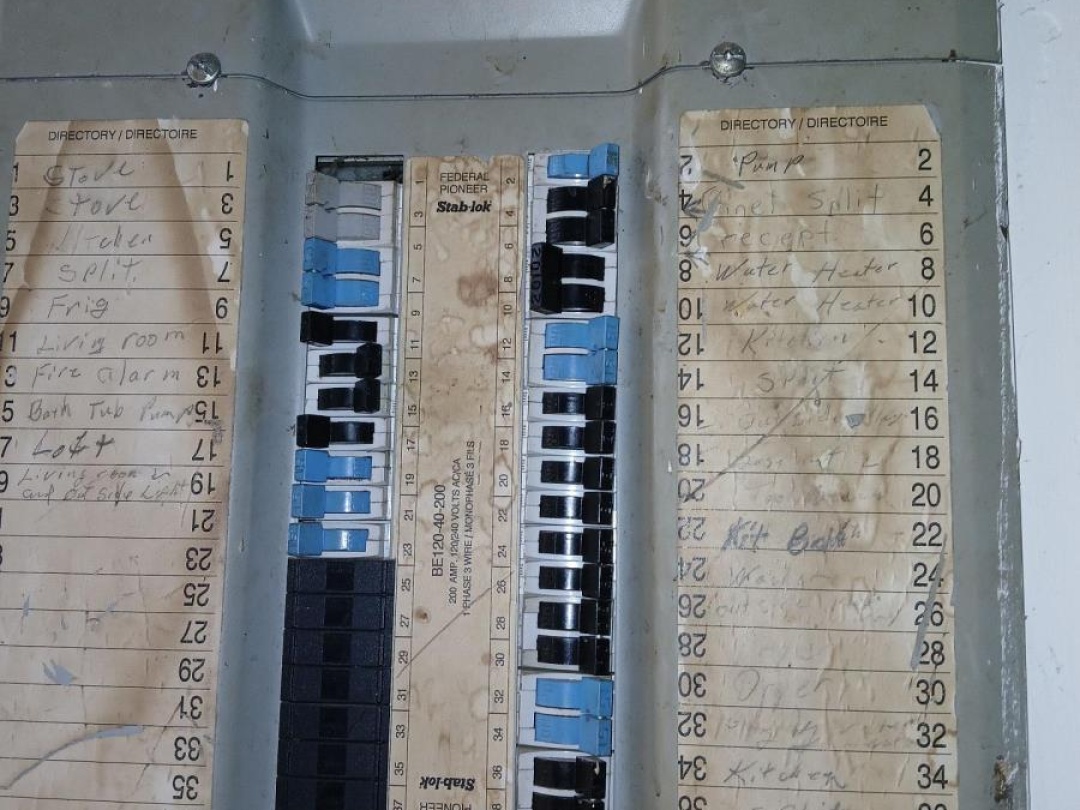 DIRECTORY / DIRECTOIRE
1 Stove 1
3 Stove 3
5 Kitchen 5
7 Split. 7
9 Frig 9
11 Living room 11
13 Fire alarm 13
15 Bath Tub Pump 15
17 Loft 17
19 Living room
and Out Side Light 19
21
23
25
27
29
31
33
35
FEDERAL
PIONEER
Stab-lok
1 2
3 4
5 6
7 8
9 10
11 12
13 14
15 16
17 18
19 20
21 22
23 24
25 26
27 28
29 30
31 32
33 34
35 36
37
BE120-40-200
200 AMP. 120/240 VOLTS AC/CA
1 PHASE 3 WIRE / MONOPHASE 3 FILS
Stab-lok
PIONEER
FEDERAL
DIRECTORY / DIRECTOIRE
2 Pump 2
4 Split 4
6 recept. 6
8 Water Heater 8
10 Water Heater 10
12 Kitchen 12
14 Split 14
16 16
18 18
20 20
22 Kit Bath 22
24 24
26 26
28 28
30 Dryer 30
32 32
34 Kitchen 34
36